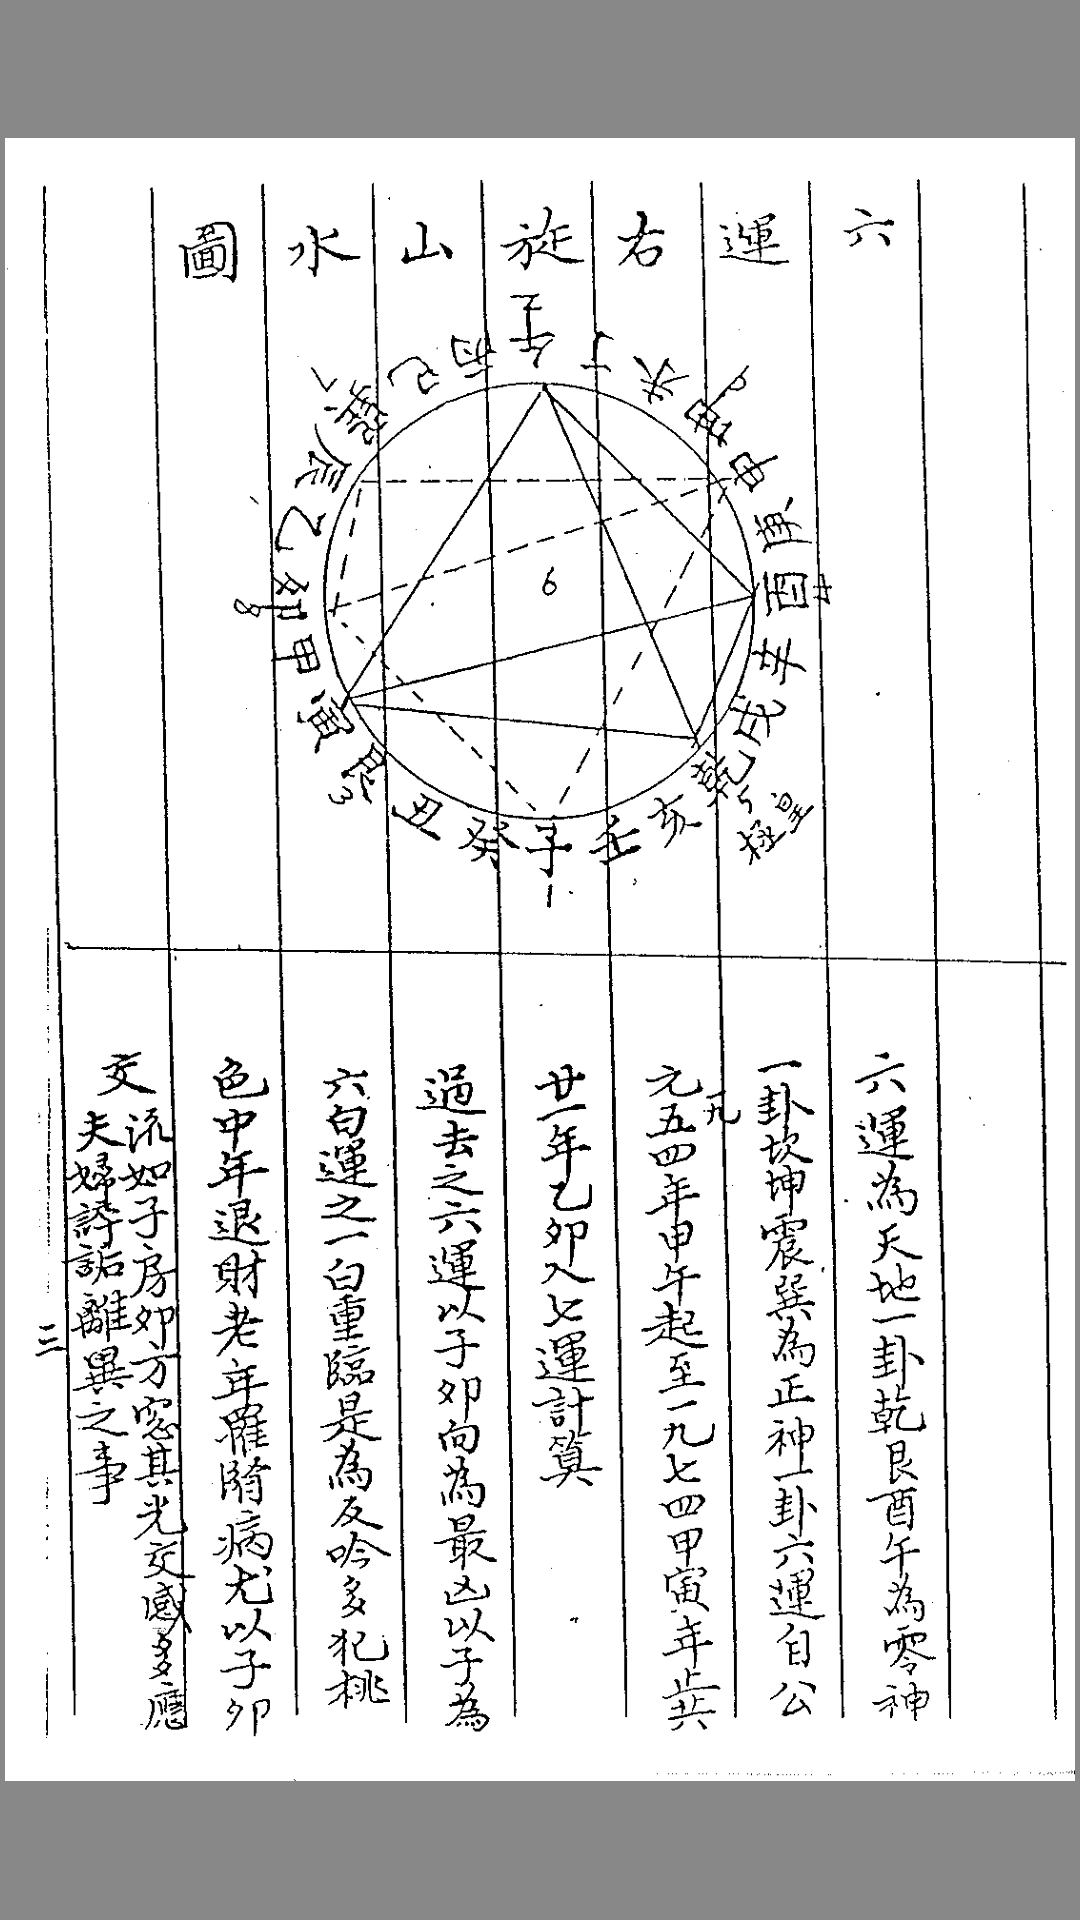 六運右旋山水圖
五
午丁未坤申庚酉辛戌乾亥壬子癸丑艮寅甲卯乙辰巽巳丙
6
8
3
皇極
六運為天地一卦乾艮酉午為零神
一卦坎坤震巽為正神一卦六運自公
元一九五四年甲午起至一九七四甲寅年止共
廿一年乙卯入七運計算
過去之六運以子卯向為最凶以子為
六白運之一白重臨是為反吟多犯桃
色中年退財老年罹隋病尤以子卯
交流如子房卯方窓其光交感多應
夫婦誖詬離異之事
三